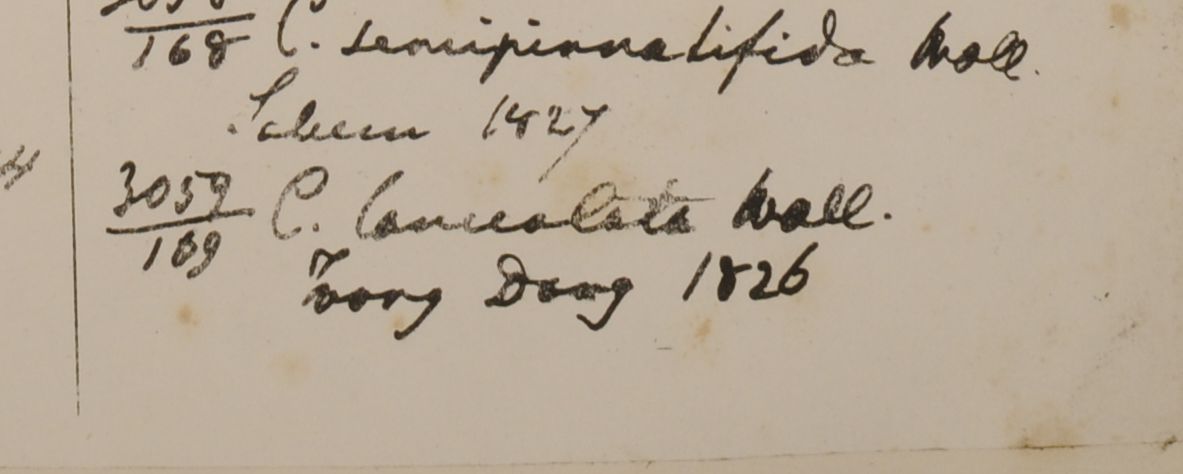 168 C. semipinnatifida Wall.
1827
3059 C. lanceolata Wall.
169
Toong Dong 1826